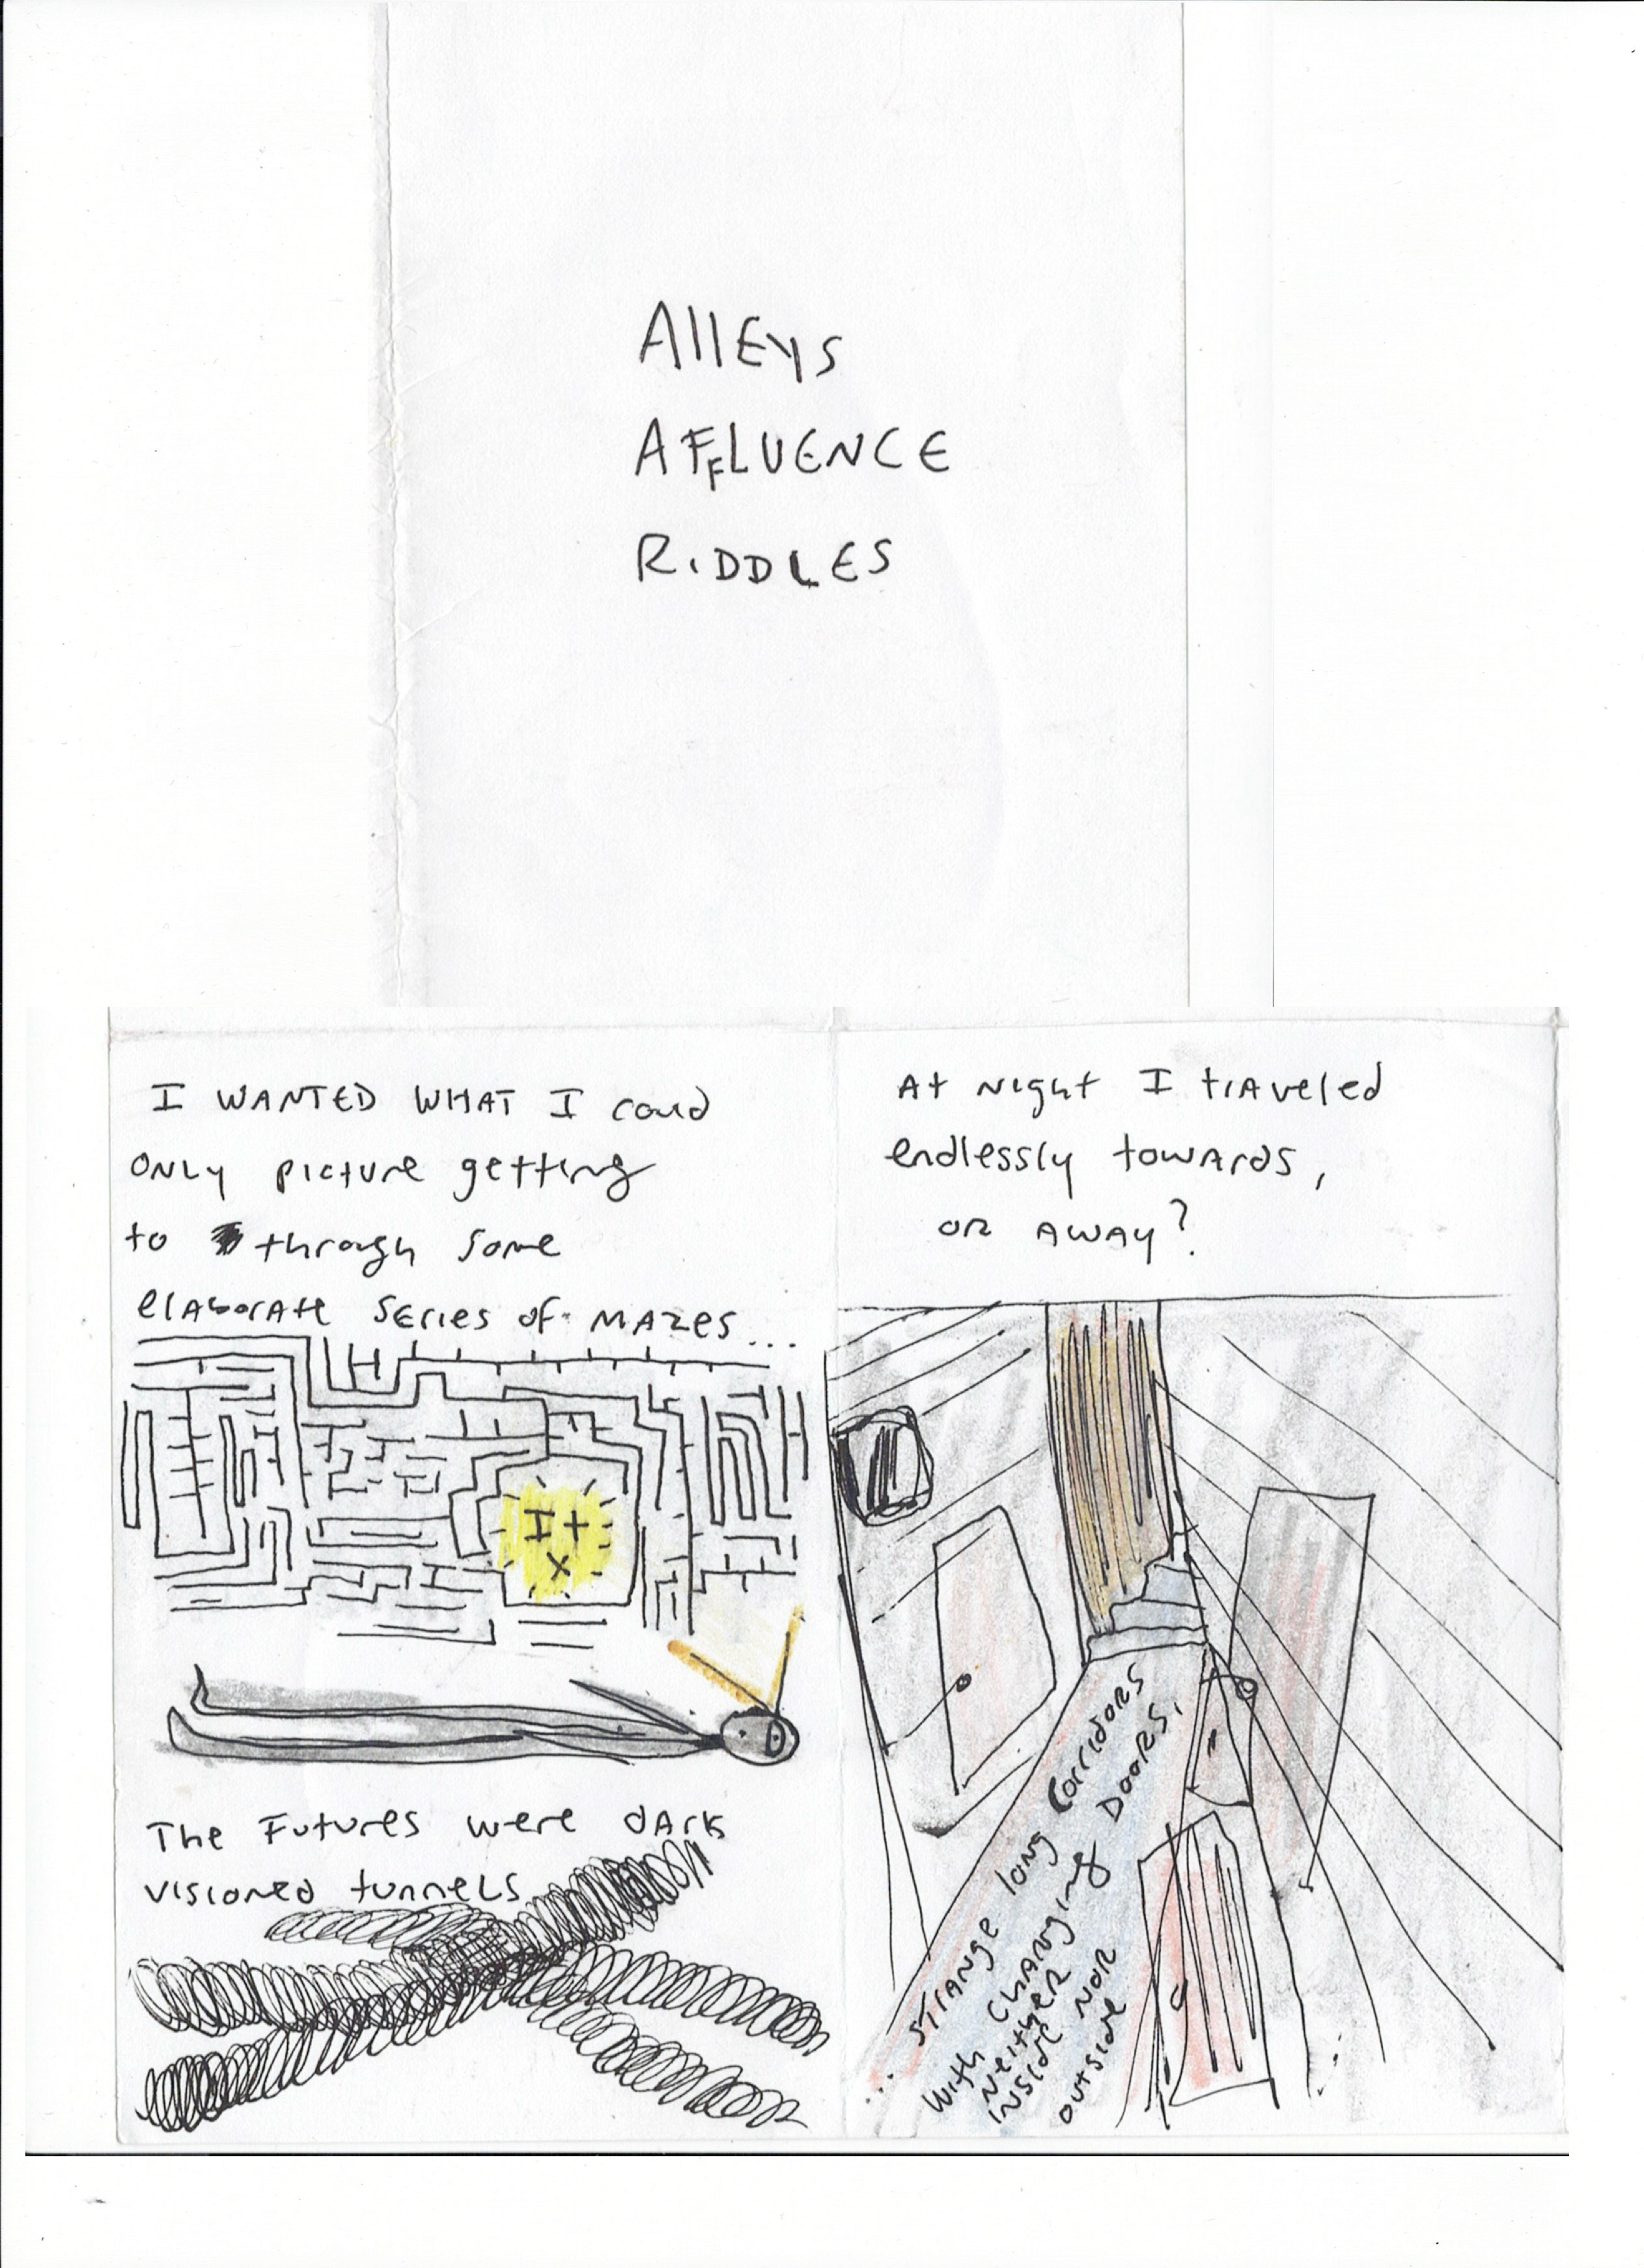 AllEYS
AFFLUENCE
RIDDLES
I WANTED WHAT I could
ONLY picture getting
to through some
elaborate SERIES of MAZES...
I +
X
The Futures were dark
visioned tunnels
At Night I traveled
endlessly towards,
or AWAY?
... STRANGE long Corridors
With CHANGING DOORS,
NeitHER
INSIDE NOR
outside